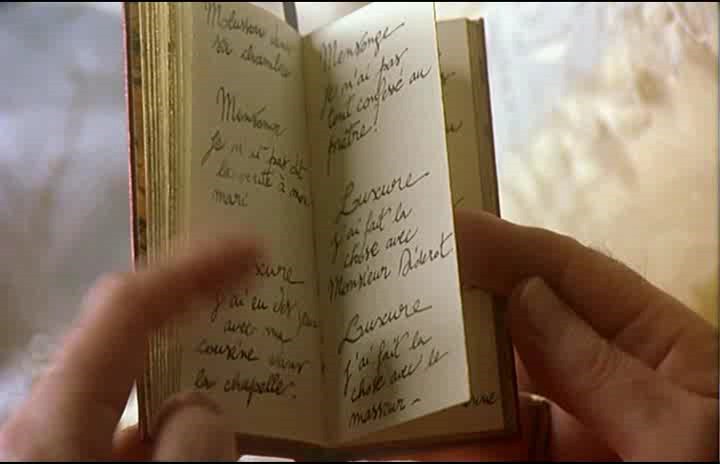 dans
sa chambre
Mensonge
Je n'ai pas dit
la vérité à mon
mari
xure
j'ai eu des
avec ma
cousine dans
la chapelle.
Mensonge
Je n'ai pas
tout confessé au
prêtre!
Luxure
j'ai fait la
chose avec
Monsieur Diderot
Luxure
j'ai fait la
chose avec le
masseur -